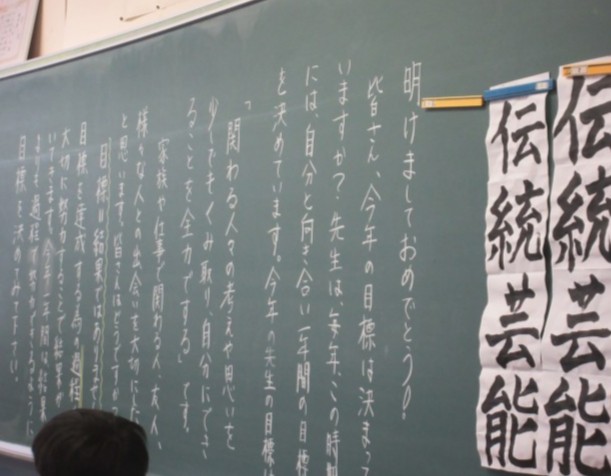 伝統芸能
伝統芸能
明けましておめでとう!
皆さん、今年の目標は決まって
いますか?先生は、毎年、この時期
には、自分と向き合い一年間の目標
を決めています。今年の先生の目標は
「関わる人々の考えや思いを
少しでもくみ取り、自分にでき
ることを全力でする」です。
家族や仕事で関わる人、友人、
様々な人との出会いを大切にした
と思います。皆さんはどうですか
目標は結果ではありません
目標を達成する為の過程
大切に努力することで結果が
いてきます。今年一年間は結果
目標を決めてみて下さい。